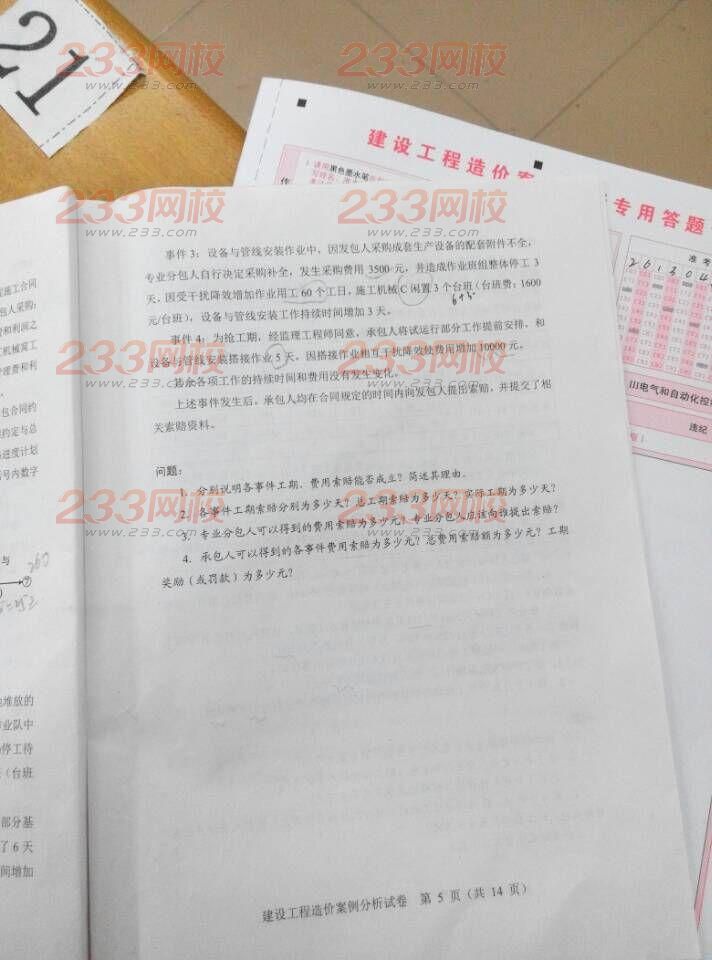 21
233网校
www.233.com
233网校
www.233.com
建设工程造价案
专用答题
1 请用黑色墨水笔
准考
2 6 1 3 0 4
III电气和自动化控
违纪
233网校
www.233.com
233网校
www.233.com
事件 3：设备与管线安装作业中，因发包人采购成套生产设备的配套附件不全，
专业分包人自行决定采购补全，发生采购费用 3500 元，并造成作业班组整体停工 3
天，因受干扰降效增加作业用工 60 个工日，施工机械 C 闲置 3 个台班（台班费：1600
元/台班），设备与管线安装工作持续时间增加 3 天。
6+3
事件 4：为抢工期，经监理工程师同意，承包人将试运行部分工作提前安排，和
设备与管线安装搭接作业 5 天，因搭接作业相互干扰降效使费用增加 10000 元。
其余各项工作的持续时间和费用没有发生变化。
上述事件发生后，承包人均在合同规定的时间内向发包人提出索赔，并提交了相
关索赔资料。
233网校
www.233.com
233网校
www.233.com
问题：
1．分别说明各事件工期、费用索赔能否成立？简述其理由。
2．各事件工期索赔分别为多少天？总工期索赔为多少天？实际工期为多少天？
3．专业分包人可以得到的费用索赔为多少元？专业分包人应该向谁提出索赔？
4．承包人可以得到的各事件费用索赔为多少元？总费用索赔额为多少元？工期
奖励（或罚款）为多少元？
233网校
www.233.com
233网校
www.233.com
建设工程造价案例分析试卷 第 5 页（共 14 页）
施工合同
包人采购；
费和利润之
工机械窝工
管理费和利
包合同约
约定与总
进度计划
号内数字
与
260
⑦
地堆放的
作业队中
停工待
（台班
部分基
了 6 天
间增加